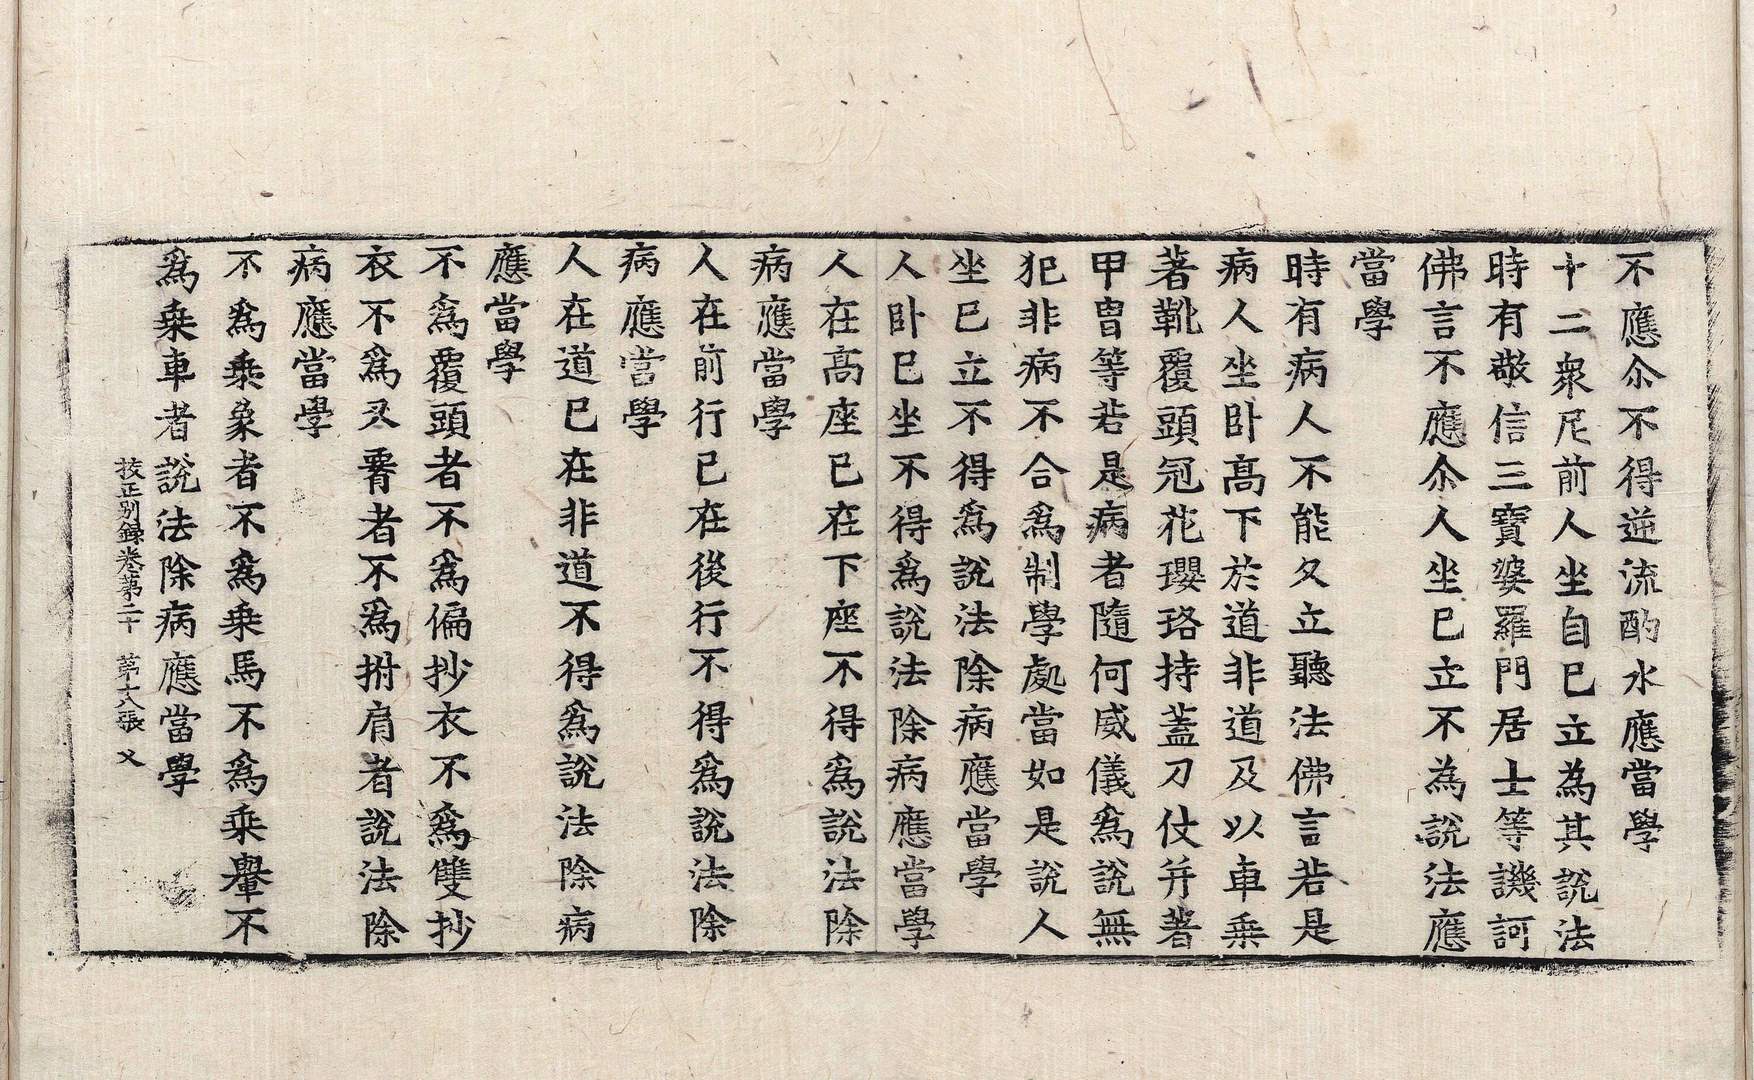 不應尒不得逆流酌水應當學
十二衆尼前人坐自已立為其說法
時有敬信三寶婆羅門居士等譏訶
佛言不應尒人坐已立不為說法應
當學
時有病人不能久立聽法佛言若是
病人坐卧髙下於道非道及以車乗
著靴覆頭冠花瓔珞持蓋刀仗并著
甲冑等若是病者隨何威儀爲說無
犯非病不合爲制學處當如是說人
坐已立不得爲說法除病應當學
人卧已坐不得爲說法除病應當學
人在髙座已在下座不得爲說法除
病應當學
人在前行已在後行不得爲說法除
病應當學
人在道已在非道不得爲說法除病
應當學
不爲覆頭者不爲偏抄衣不爲雙抄
衣不爲叉肩者不爲拊肩者說法除
病應當學
不爲乗象者不爲乗馬不爲乗轝不
爲乗車者說法除病應當學
挍正別録卷第二十 第十八張 乂